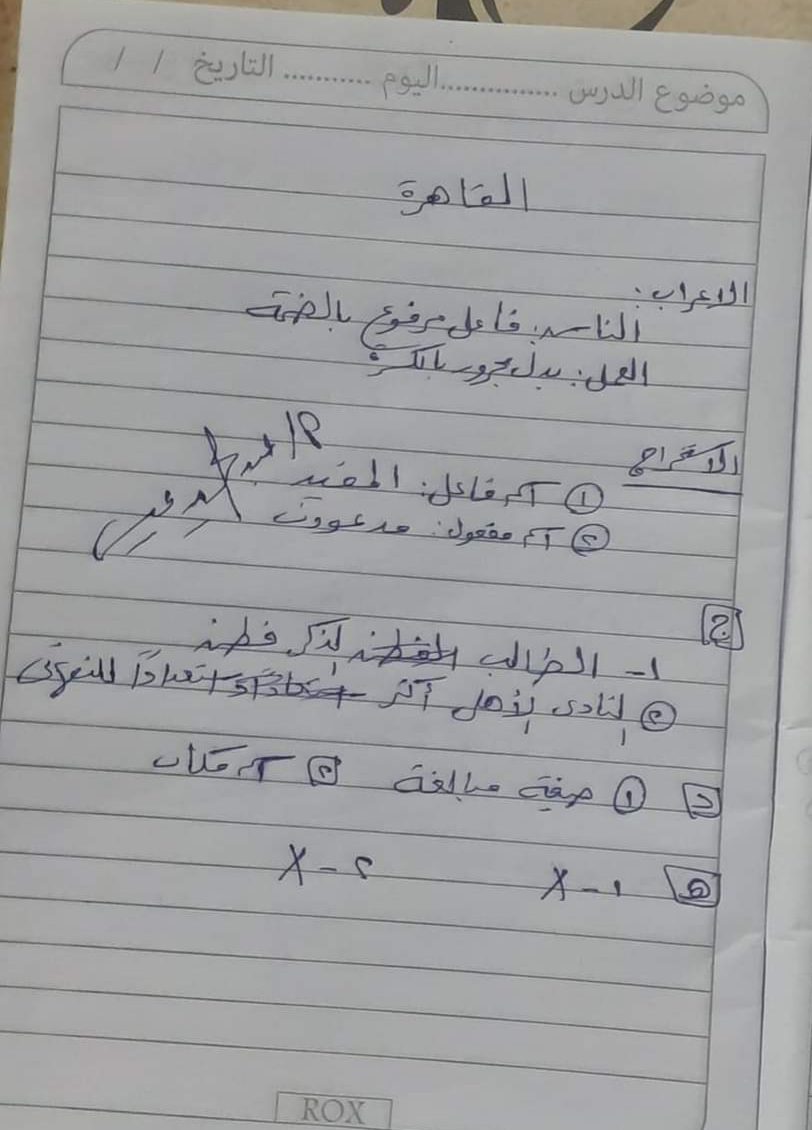 موضوع الدرس ............... اليوم ........... التاريخ / /
القاهرة
الاعراب:
الناس: فاعل مرفوع بالضمة
العمل: بدل مجرور بالكسرة
الاستخراج
① اسم فاعل: المفيد
② اسم مفعول: مدعوون
ج
١- الطالب الذكي فطن
② النادى الأهل أكثر استعداداً للتفوق
د ① صيغة مبالغة ② اسم مكان
هـ ١- X ٢- X
ROX